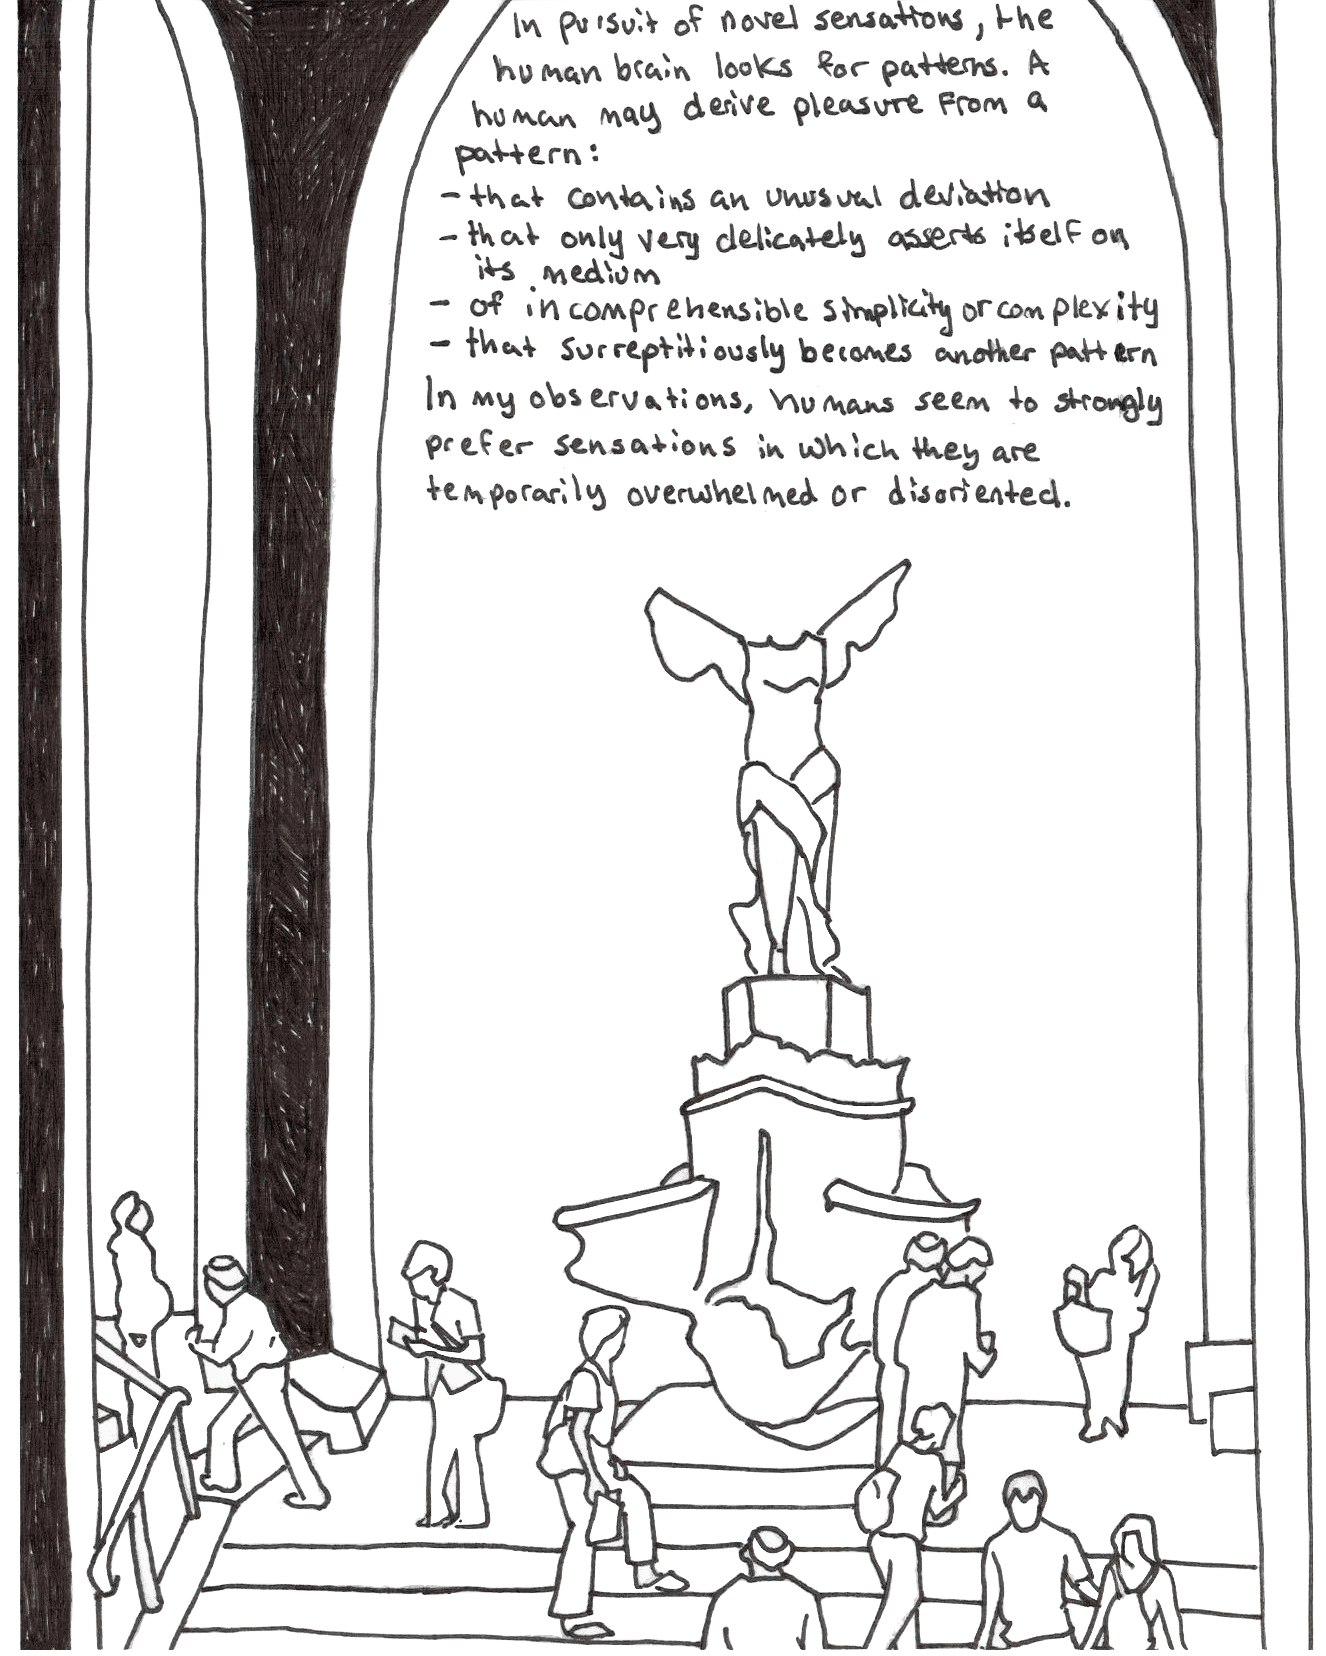 In pursuit of novel sensations, the
human brain looks for patterns. A
human may derive pleasure from a
pattern:
- that contains an unusual deviation
- that only very delicately asserts itself on
its medium
- of incomprehensible simplicity or complexity
- that surreptitiously becomes another pattern
In my observations, humans seem to strongly
prefer sensations in which they are
temporarily overwhelmed or disoriented.